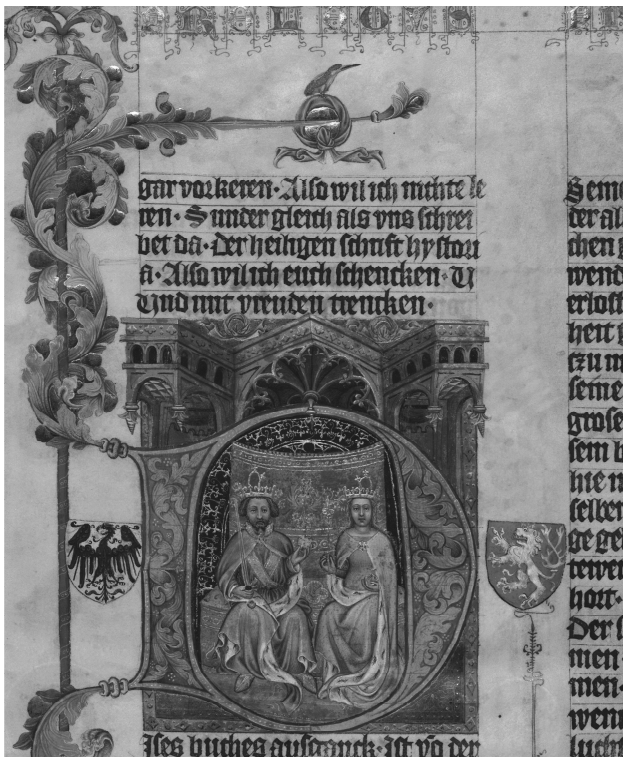 gar vorkeren· Also wil ich nichte le
ren· Sunder gleich als vns schrei
bet da· der heiligen schrift hystori
a· Also wil ich euch schencken· U
Und mit vreuden trencken·
Ises buches ausganck· Ist vō der
der al
chen
wend
erlost
heit
czu m
seine
grose
sem
hie
selben
ge
hort·
Der
men
men·
wenn